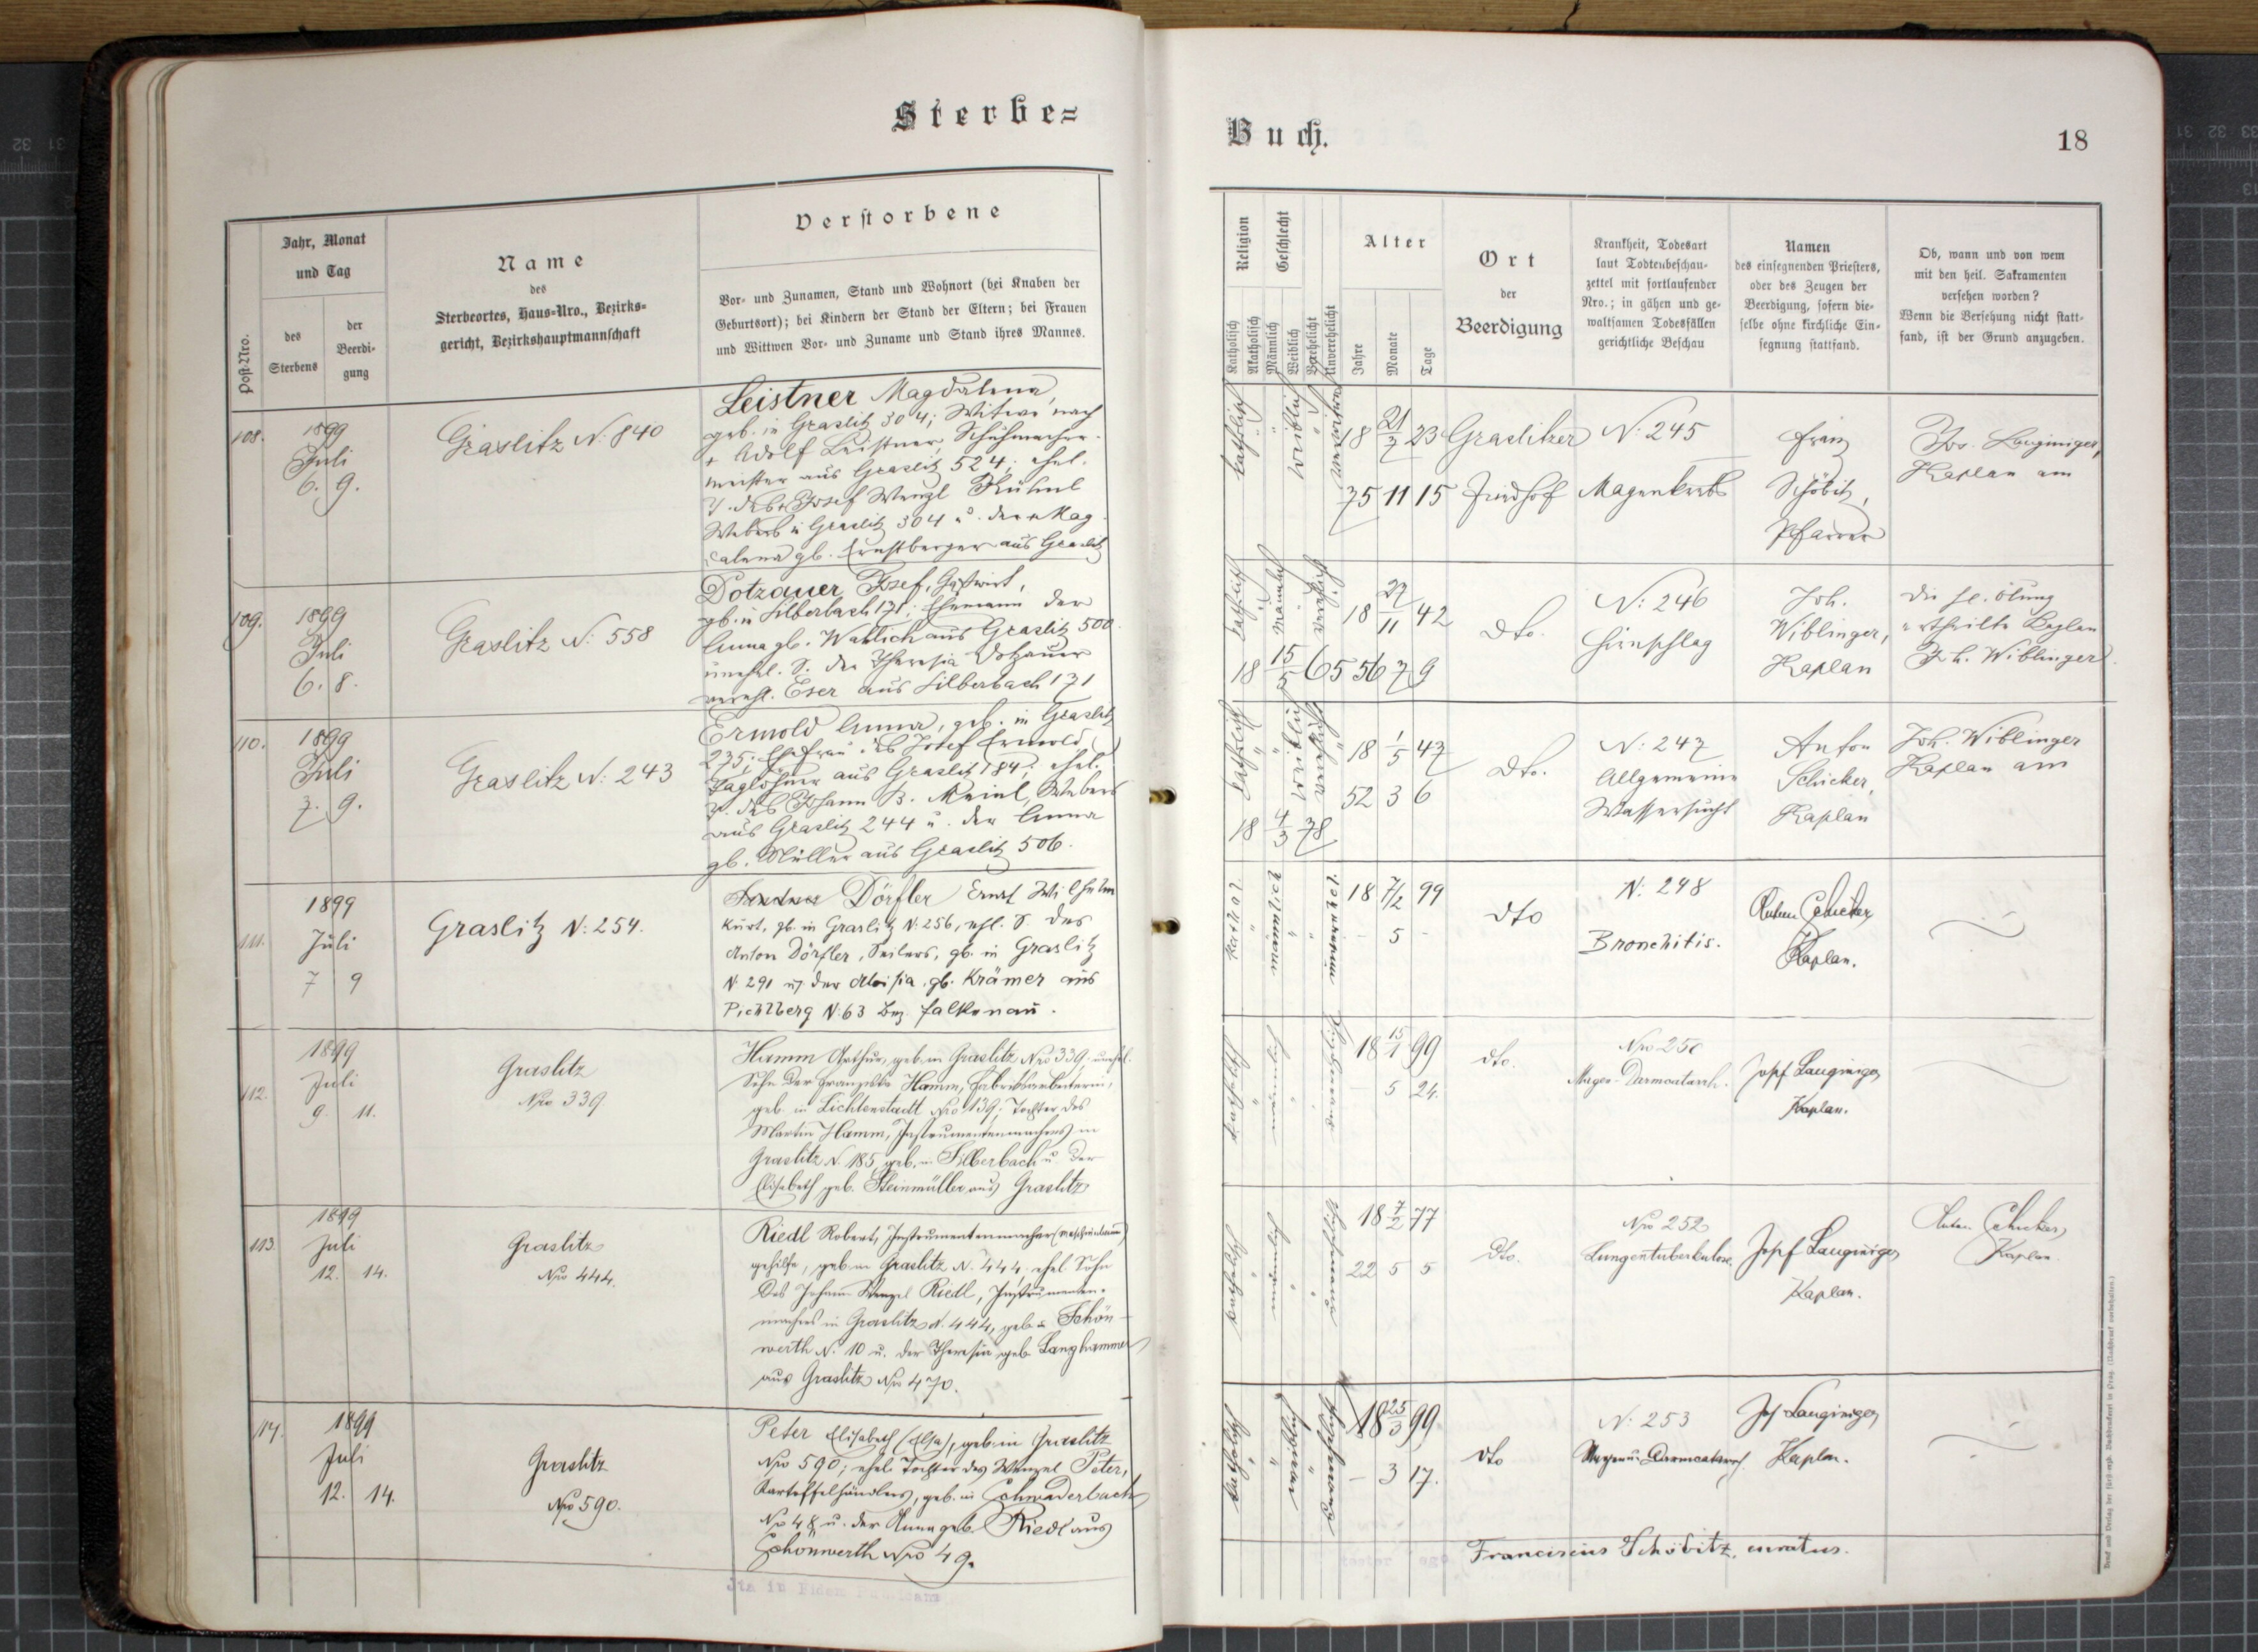 Sterbe=
Buch.
18
Post-Nro.
Jahr, Monat
und Tag
des
Sterbens
der
Beerdi-
gung
Name
des
Sterbeortes, Haus-Nro., Bezirks-
gericht, Bezirkshauptmannschaft
Verstorbene
Vor- und Zunamen, Stand und Wohnort (bei Knaben der
Geburtsort); bei Kindern der Stand der Eltern; bei Frauen
und Wittwen Vor- und Zuname und Stand ihres Mannes.
Religion
Katholisch
Akatholisch
Geschlecht
Männlich
Weiblich
Verehelicht
Unverehelicht
Alter
Jahre
Monate
Tage
Ort
der
Beerdigung
Krankheit, Todesart
laut Todtenbeschau-
zettel mit fortlaufender
Nro.; in gähen und ge-
waltsamen Todesfällen
gerichtliche Beschau
Namen
des einsegnenden Priesters,
oder des Zeugen der
Beerdigung, sofern die-
selbe ohne kirchliche Ein-
segnung stattfand.
Ob, wann und von wem
mit den heil. Sakramenten
versehen worden?
Wenn die Versehung nicht statt-
fand, ist der Grund anzugeben.
108.
1899
Juli
6. 9.
Graslitz N. 840
Leistner Magdalena,
geb. in Graslitz 304; Witwe nach
+ Adolf Leistner, Schuhmacher-
meister aus Graslitz 524, ehel.
T. des + Josef Wenzl Kühnl
Webers in Graslitz 304 u. der + Mag
dalena gb. Ernstberger aus Graslitz
katholisch
weiblich
18 21/7 23
75 11 15
Graslitzer
Friedhof
N. 245
Magenkrebs
Franz
Schöbitz,
Pfarrer
Jos. Lauginiger,
Kaplan am
109.
1899
Juli
6. 8.
Graslitz N. 558
Dotzauer Josef, Gastwirt,
gb. in Silberbach 171; Ehemann der
Anna gb. Watlich aus Graslitz 500
unehel. S. der Theresia Dotzauer
vereh. Eser aus Silberbach 171
katholisch
männlich
verehelicht
18 27/11 42
18 15/5 65 56 7 9
dto.
N. 246
Hirnschlag
Joh.
Wiblinger,
Kaplan
die hl. Ölung
ertheilte Kaplan
Joh. Wiblinger
110.
1899
Juli
7. 9.
Graslitz N. 243
Ermold Anna, geb. in Graslitz
275; Ehefrau des Josef Ermold,
Taglöhner aus Graslitz 184; ehel.
T. des Johann B. Meinl, Webers
aus Graslitz 244 u. der Anna
gb. Müller aus Graslitz 506.
katholisch
weiblich
verehelicht
18 1/5 47
52 3 6
18 4/3 78
dto.
N. 247
Allgemeine
Wassersucht
Anton
Schicker,
Kaplan
Joh. Wiblinger
Kaplan am
111.
1899
Juli
7 9
Graslitz N. 254.
Dörfler Ernst Wilhelm
Kurt, gb. in Graslitz N. 256, ehl. S. des
Anton Dörfler, Seilers, gb. in Graslitz
N. 291 u. der Aloisia, gb. Krämer aus
Pichlberg N. 63 Bez. Falkenau.
männlich
18 7/2 99
- 5 -
dto
N. 248
Bronchitis.
Anton Schicker
Kaplan.
112.
1899
Juli
9. 11.
Graslitz
Nro 339
Hamm Arthur, geb. in Graslitz Nro 339, unehel.
Sohn der Franziska Hamm, Fabriksarbeiterin,
geb. in Lichtenstadt Nro 139; Tochter des
Martin Hamm, Instrumentenmachers in
Graslitz N. 185, geb. in Silberbach u. der
Elisabeth geb. Steinmüller aus Graslitz
katholisch
männlich
unverehelicht
18 15/1 99
5 24.
dto.
Nro 250
Magen-Darmcatarrh.
Josef Lauginiger
Kaplan.
113.
1899
Juli
12. 14.
Graslitz
Nro 444.
Riedl Robert, Instrumentenmacher
gehilfe, geb. in Graslitz N. 444, ehel. Sohn
des Johann Wenzel Riedl, Instrumenten-
machers in Graslitz N. 444, geb. in Schön-
werth N. 10 u. der Theresia geb. Langhammer
aus Graslitz Nro 470.
katholisch
männlich
unverehelicht
18 7/2 77
22 5 5
dto.
Nro 252
Lungentuberkulose.
Josef Lauginiger
Kaplan.
Anton Schicker,
Kaplan
114.
1899
Juli
12. 14.
Graslitz
Nro 590.
Peter Elisabeth (Elsa), geb. in Graslitz
Nro 590; ehel. Tochter des Wenzel Peter,
Kartoffelhändlers, geb. in Schwaderbach
Nro 48 u. der Anna geb. Riedl aus
Schönwerth Nro 49.
katholisch
weiblich
unverehelicht
18 25/3 99
- 3 17.
dto
N. 253
Magen u. Darmcatarrh
Jos. Lauginiger
Kaplan.
Franciscus Schöbitz, curatus.